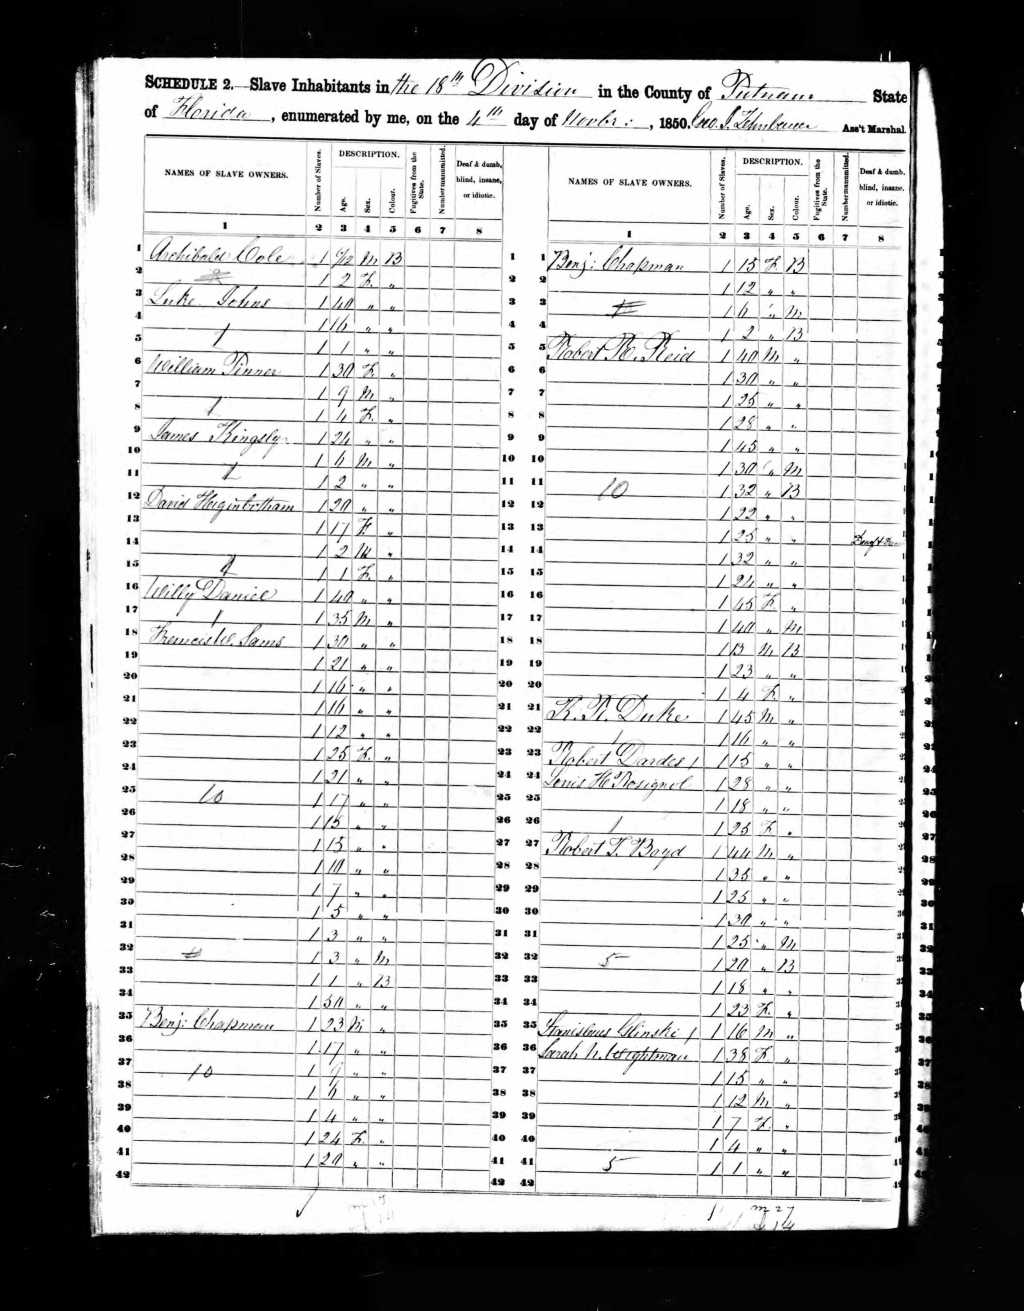 SCHEDULE 2.—Slave Inhabitants in the 18th Division in the County of Putnam State
of Florida, enumerated by me, on the 4th day of Novbr:, 1850. Geo. Ass't Marshal.
NAMES OF SLAVE OWNERS. Number of Slaves. DESCRIPTION. Age. Sex. Colour. Fugitives from the State. Number manumitted. Deaf & dumb, blind, insane, or idiotic.
1 2 3 4 5 6 7 8
1 Archibald Cole 1 6/12 M B 1
2 1 2 F „ 2
3 Luke Johns 1 40 „ „ 3
4 1 16 „ „ 4
5 1 1 „ „ 5
6 William Pinner 1 30 F „ 6
7 1 9 M „ 7
8 1 4 F „ 8
9 James Kingsly 1 24 „ „ 9
10 1 6 M „ 10
11 1 2 „ „ 11
12 David Higinbotham 1 20 „ „ 12
13 1 17 F „ 13
14 1 2 M „ 14
15 1 1 F „ 15
16 Willy Daniel 1 40 „ „ 16
17 1 35 M „ 17
18 Francis W. Sams 1 30 „ „ 18
19 1 21 „ „ 19
20 1 16 „ „ 20
21 1 16 „ „ 21
22 1 12 „ „ 22
23 1 25 F „ 23
24 1 21 „ „ 24
25 10 1 17 „ „ 25
26 1 15 „ „ 26
27 1 15 „ „ 27
28 1 10 „ „ 28
29 1 7 „ „ 29
30 1 5 „ „ 30
31 1 3 „ „ 31
32 1 3 „ M 32
33 1 1 „ B 33
34 1 50 „ „ 34
35 Benj: Chapman 1 23 M „ 35
36 1 17 „ „ 36
37 10 1 9 „ „ 37
38 1 6 „ „ 38
39 1 4 „ „ 39
40 1 24 F „ 40
41 1 20 „ „ 41
42 42
NAMES OF SLAVE OWNERS. Number of Slaves. DESCRIPTION. Age. Sex. Colour. Fugitives from the State. Number manumitted. Deaf & dumb, blind, insane, or idiotic.
1 2 3 4 5 6 7 8
1 Benj: Chapman 1 15 F B
2 1 12 „ „
3 1 6 „ M
4 1 2 „ B
5 Robert R. Reid 1 40 M „
6 1 30 „ „
7 1 25 „ „
8 1 28 „ „
9 1 45 „ „
10 1 30 „ M
11 10 1 32 „ B
12 1 22 „ „
13 1 25 „ „ Deaf &
14 1 32 „ „
15 1 24 „ „
16 1 45 F „
17 1 40 „ M
18 1 13 M B
19 1 23 „ „
20 1 4 F „
21 K. R. Duke 1 45 M „
22 1 16 „ „
23 Robert Dardes 1 1 15 „ „
24 Louis H. Rosignol 1 28 „ „
25 1 18 „ „
26 1 25 F „
27 Robert T. Boyd 1 44 M „
28 1 35 „ „
29 1 25 „ „
30 1 30 „ „
31 1 25 „ M
32 5 1 20 „ B
33 1 18 „ „
34 1 23 F „
35 Stanislaus Glinski 1 1 16 M „
36 Sarah N. Wightman 1 38 F „
37 1 15 „ „
38 1 12 M „
39 1 7 F „
40 1 4 „ „
41 5 1 1 „ „
42